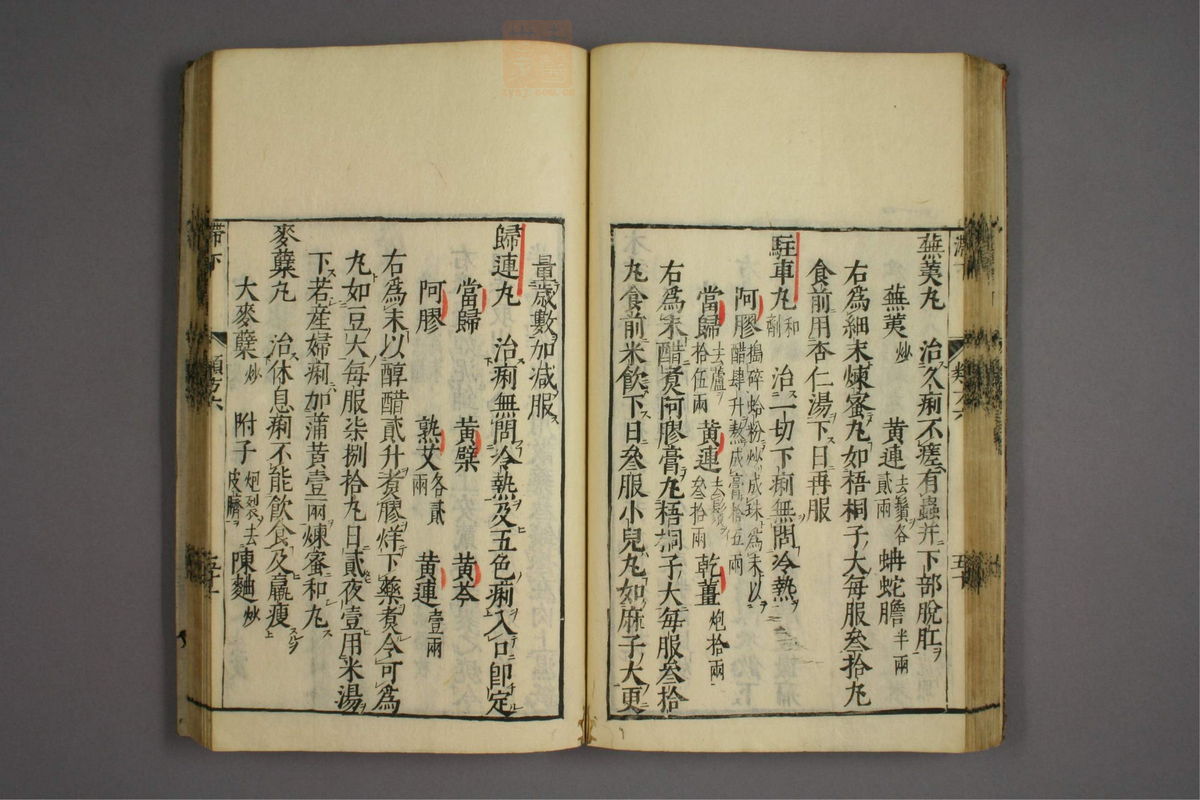 蕪荑丸　治久痢不瘥有蟲幷下部脫肛
蕪荑炒　黃連去鬚各貳兩　蚺蛇膽半兩
右爲細末煉蜜丸如梧桐子大每服叁拾丸
食前用杏仁湯下日再服
駐車丸和劑　治一切下痢無問冷熱
阿膠搗碎蛤粉炒成珠爲末以醋肆升熬成膏拾五兩
當歸去蘆拾伍兩　黃連去鬚叁拾兩　乾薑炮拾兩
右爲末醋煑阿膠膏丸梧桐子大每服叁拾
丸食前米飲下日叁服小兒丸如麻子大更
量歲數加減服
歸連丸　治痢無問冷熱及五色痢入口卽定
當歸　黃蘗　黃芩
阿膠　熟艾各貳兩　黃連壹兩
右爲末以醇醋貳升煑膠烊下藥煑令可爲
丸如豆大每服柒捌拾丸日貳夜壹用米湯
下若産婦痢加蒲黃壹兩煉蜜和丸
麥蘗丸　治休息痢不能飮食及羸瘦
大麥蘗炒　附子炮裂去皮臍　陳麯炒
滯下
類方六